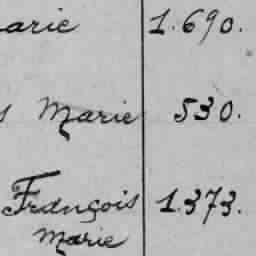 arie 1.690.
s Marie 530.
François 1.373.
Marie